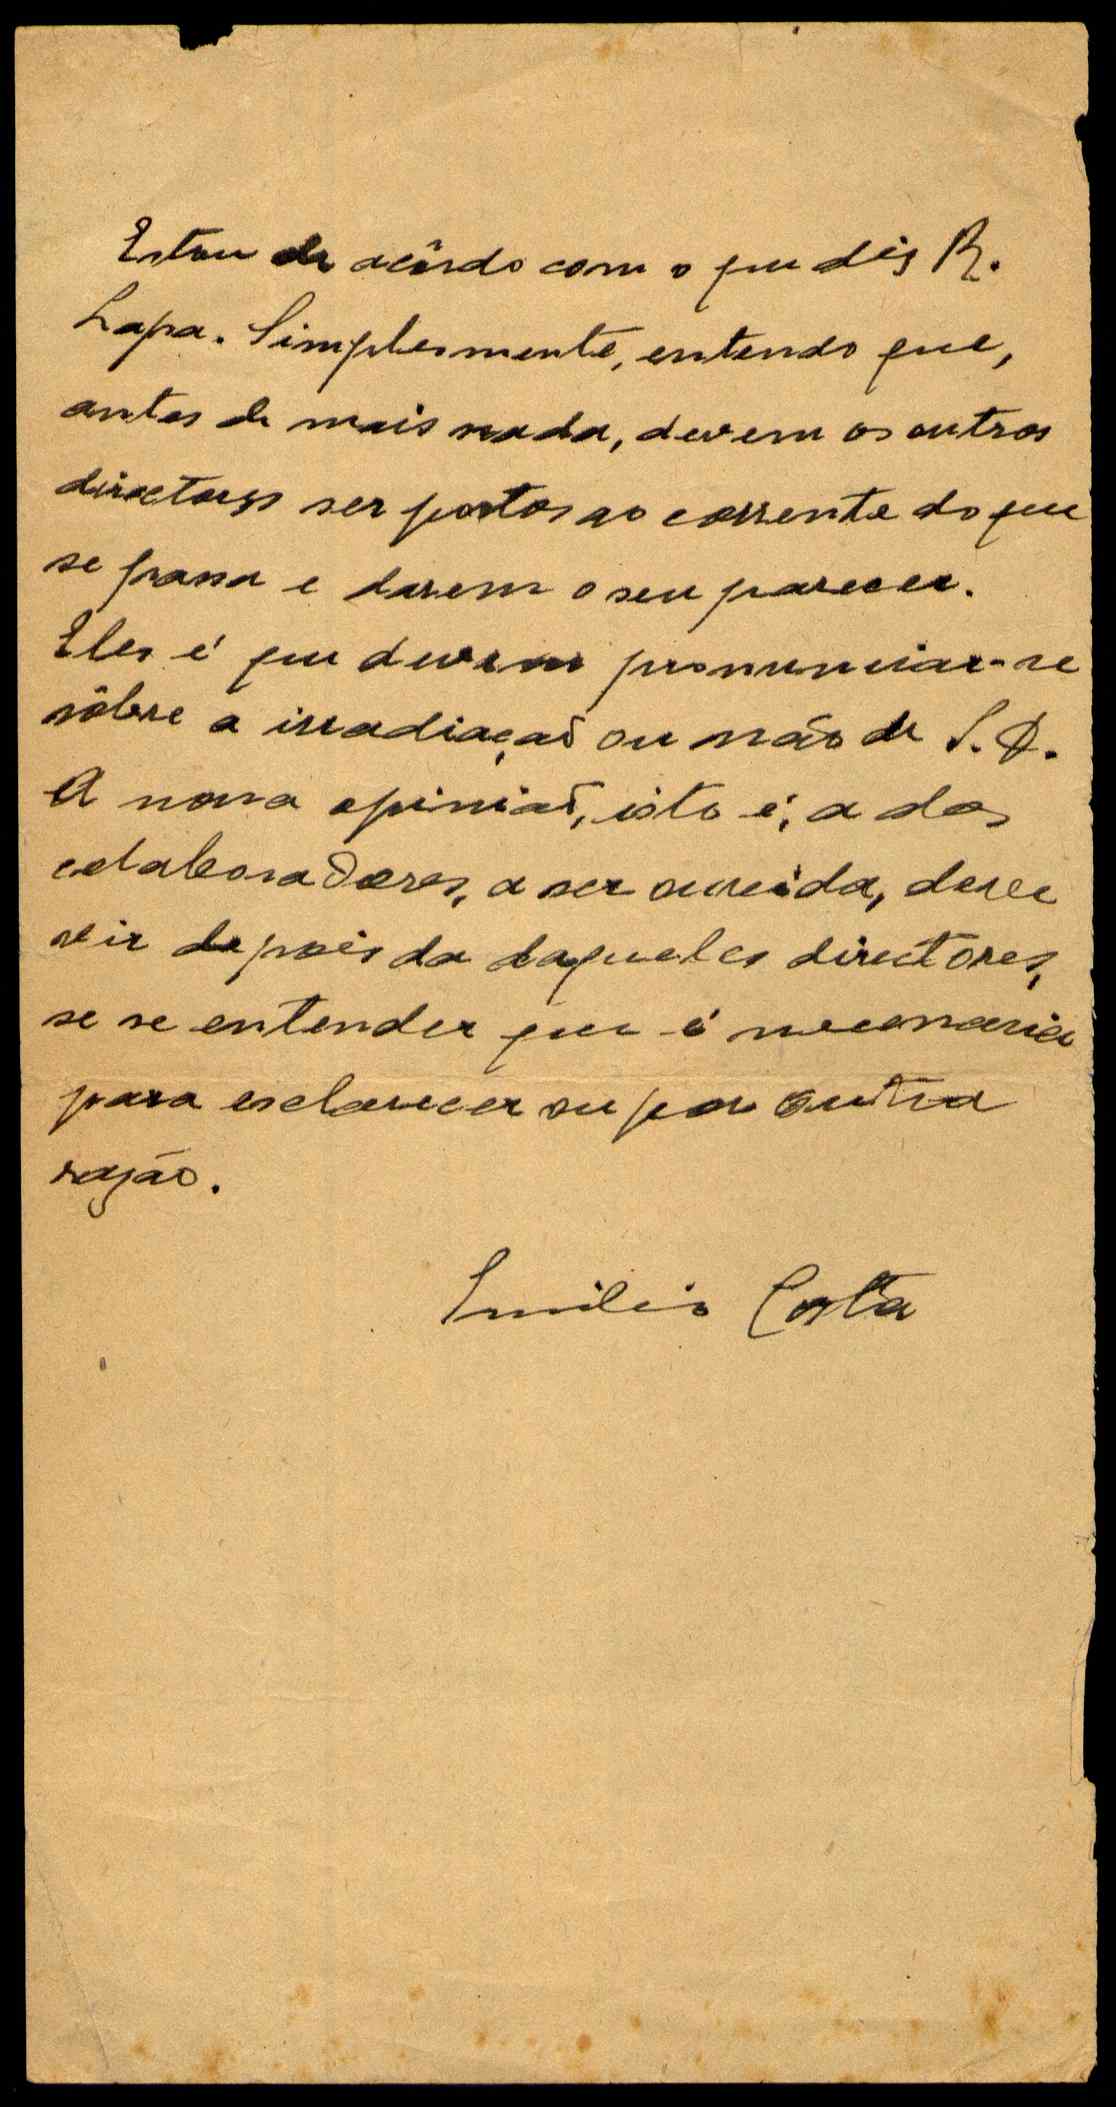 Estou de acôrdo com o que diz R.
Lapa. Simplesmente, entendo que,
antes de mais nada, devem os outros
directores ser postos ao corrente do que
se passa e darem o seu parecer.
Eles é que devem pronunciar-se
sôbre a irradiação ou não de S. D.
A nossa opinião, isto é, a dos
colaboradores, a ser ouvida, deve
vir depois da daqueles directores,
se se entender que é necessaria
para esclarecer ou por outra
razão.
Emilio Costa